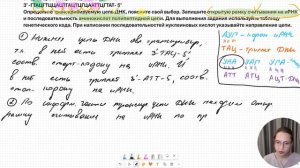 Определите транскрибируемую цепь ДНК, поясните свой выбор. Запишите открытую рамку считывания на иРНК
и последовательность аминокислот полипептидной цепи. Для выполнения задания используйте таблицу
генетического кода. При написании последовательностей нуклеиновых кислот указывайте направление цепи.
① Нижняя цепь ДНК явл. транскрибир.,
т.к. в ней есть триплет 3'-ТАЦ-5',
соотв. старт-кодону на иРНК. И
в ней есть триплет 3'-АТТ-5', соотв.
стоп-кодону на иРНК.
АУГ - кодон иРНК
ТАЦ - триплет ДНК
УАА УАГ УГА
АТТ АТЦ АЦТ - ДНК
② По
рамку считывания на иРНК по